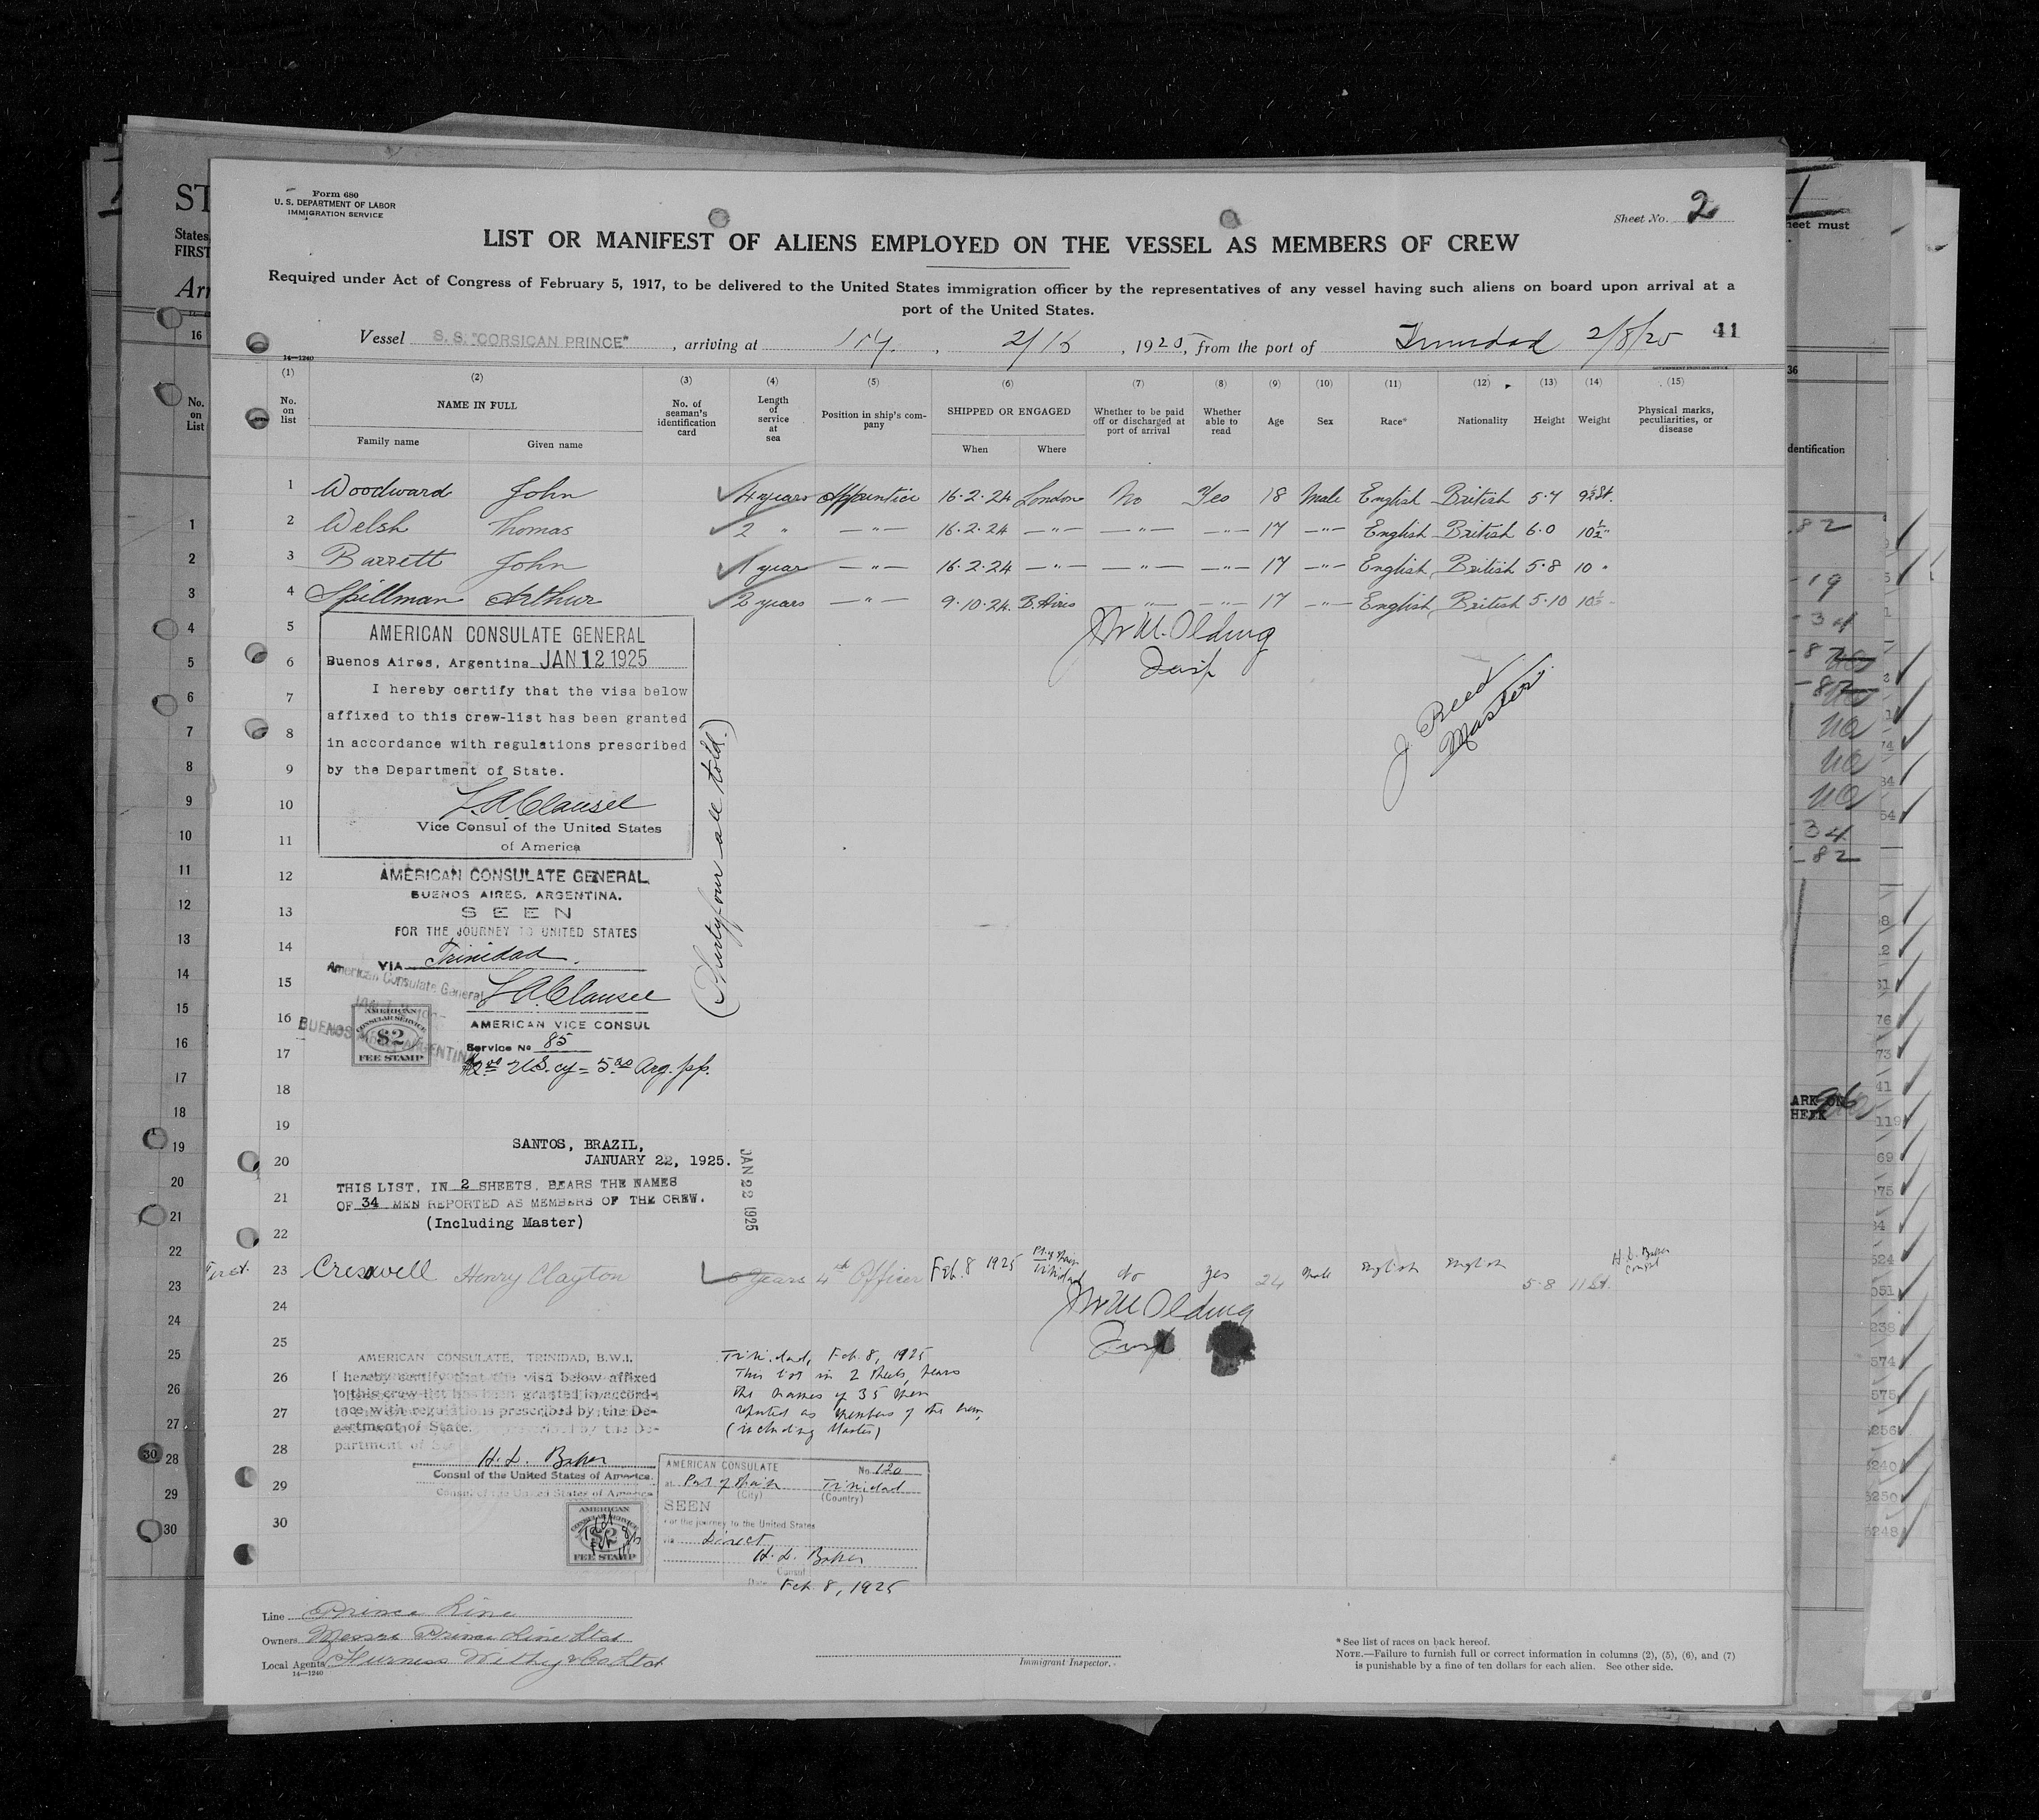 Form 680
U. S. DEPARTMENT OF LABOR
IMMIGRATION SERVICE
Sheet No. 2
LIST OR MANIFEST OF ALIENS EMPLOYED ON THE VESSEL AS MEMBERS OF CREW
Required under Act of Congress of February 5, 1917, to be delivered to the United States immigration officer by the representatives of any vessel having such aliens on board upon arrival at a
port of the United States.
Vessel S. S. "CORSICAN PRINCE", arriving at , 2/15, 1925, from the port of Trinidad 2/8/25 41
14—1240
(1) (2) (3) (4) (5) (6) (7) (8) (9) (10) (11) (12) (13) (14) (15)
No. on list NAME IN FULL No. of seaman's identification card Length of service at sea Position in ship's company SHIPPED OR ENGAGED Whether to be paid off or discharged at port of arrival Whether able to read Age Sex Race* Nationality Height Weight Physical marks, peculiarities, or disease
Family name Given name When Where
1 Woodward John 4 years Apprentice 16.2.24 London No Yes 18 Male English British 5.7 9½ St.
2 Welsh Thomas 2 " — " — 16.2.24 — " — — " — — " — 17 — " — English British 6.0 10½ "
3 Barrett John 1 year — " — 16.2.24 — " — — " — — " — 17 — " — English British 5.8 10 "
4 Spillman Arthur 2 years — " — 9.10.24. B. Aires — " — — " — 17 — " — English British 5.10 10½ -
5
AMERICAN CONSULATE GENERAL
Wm. Olding
6 Buenos Aires, Argentina JAN 12 1925
J. Reed
Master.
7 I hereby certify that the visa below
8 affixed to this crew-list has been granted
in accordance with regulations prescribed
9 by the Department of State.
10 L.A. Clausel
Vice Consul of the United States
11 of America
(Thirtyfour all told.)
12 AMERICAN CONSULATE GENERAL
BUENOS AIRES, ARGENTINA.
13 SEEN
FOR THE JOURNEY TO UNITED STATES
14 VIA Trinidad.
American Consulate General
15 L.A. Clausel
16 AMERICAN VICE CONSUL
BUENOS AIRES, ARGENTINA
AMERICAN
CONSULAR SERVICE
$2
FEE STAMP
Service No 85
17 $2.00 U.S. cy = 5.00 Arg. pp.
18
19
SANTOS, BRAZIL,
20 JANUARY 22, 1925.
JAN 22 1925
THIS LIST, IN 2 SHEETS, BEARS THE NAMES
21 OF 34 MEN REPORTED AS MEMBERS OF THE CREW.
(Including Master)
22
23 Creswell Henry Clayton 8 years 4th Officer Feb. 8 1925 Pt. of Spain Trinidad No yes 24 Male English English 5.8 11 St. H. D. Baker Consul
24 Wm. Olding
25
AMERICAN CONSULATE, TRINIDAD, B.W.I.
26 I hereby certify that the visa below affixed
to this crew-list has been granted in accord-
27 ance with regulations prescribed by the De-
partment of State.
28 H. D. Baker
Consul of the United States of America.
Trinidad, Feb. 8, 1925
This list in 2 sheets, bears
the names of 35 men
reported as members of the crew,
(including Master)
29 AMERICAN CONSULATE No. 120
at Port of Spain Trinidad
(City) (Country)
30 SEEN
For the journey to the United States
via Direct
H. D. Baker
Consul
Date Feb. 8, 1925
AMERICAN
CONSULAR SERVICE
$2
FEE STAMP
Line Prince Line
Owners Messrs Prince Line Ltd
Local Agents Furness Withy & Co Ltd
14—1240
Immigrant Inspector.
* See list of races on back hereof.
NOTE.—Failure to furnish full or correct information in columns (2), (5), (6), and (7)
is punishable by a fine of ten dollars for each alien. See other side.